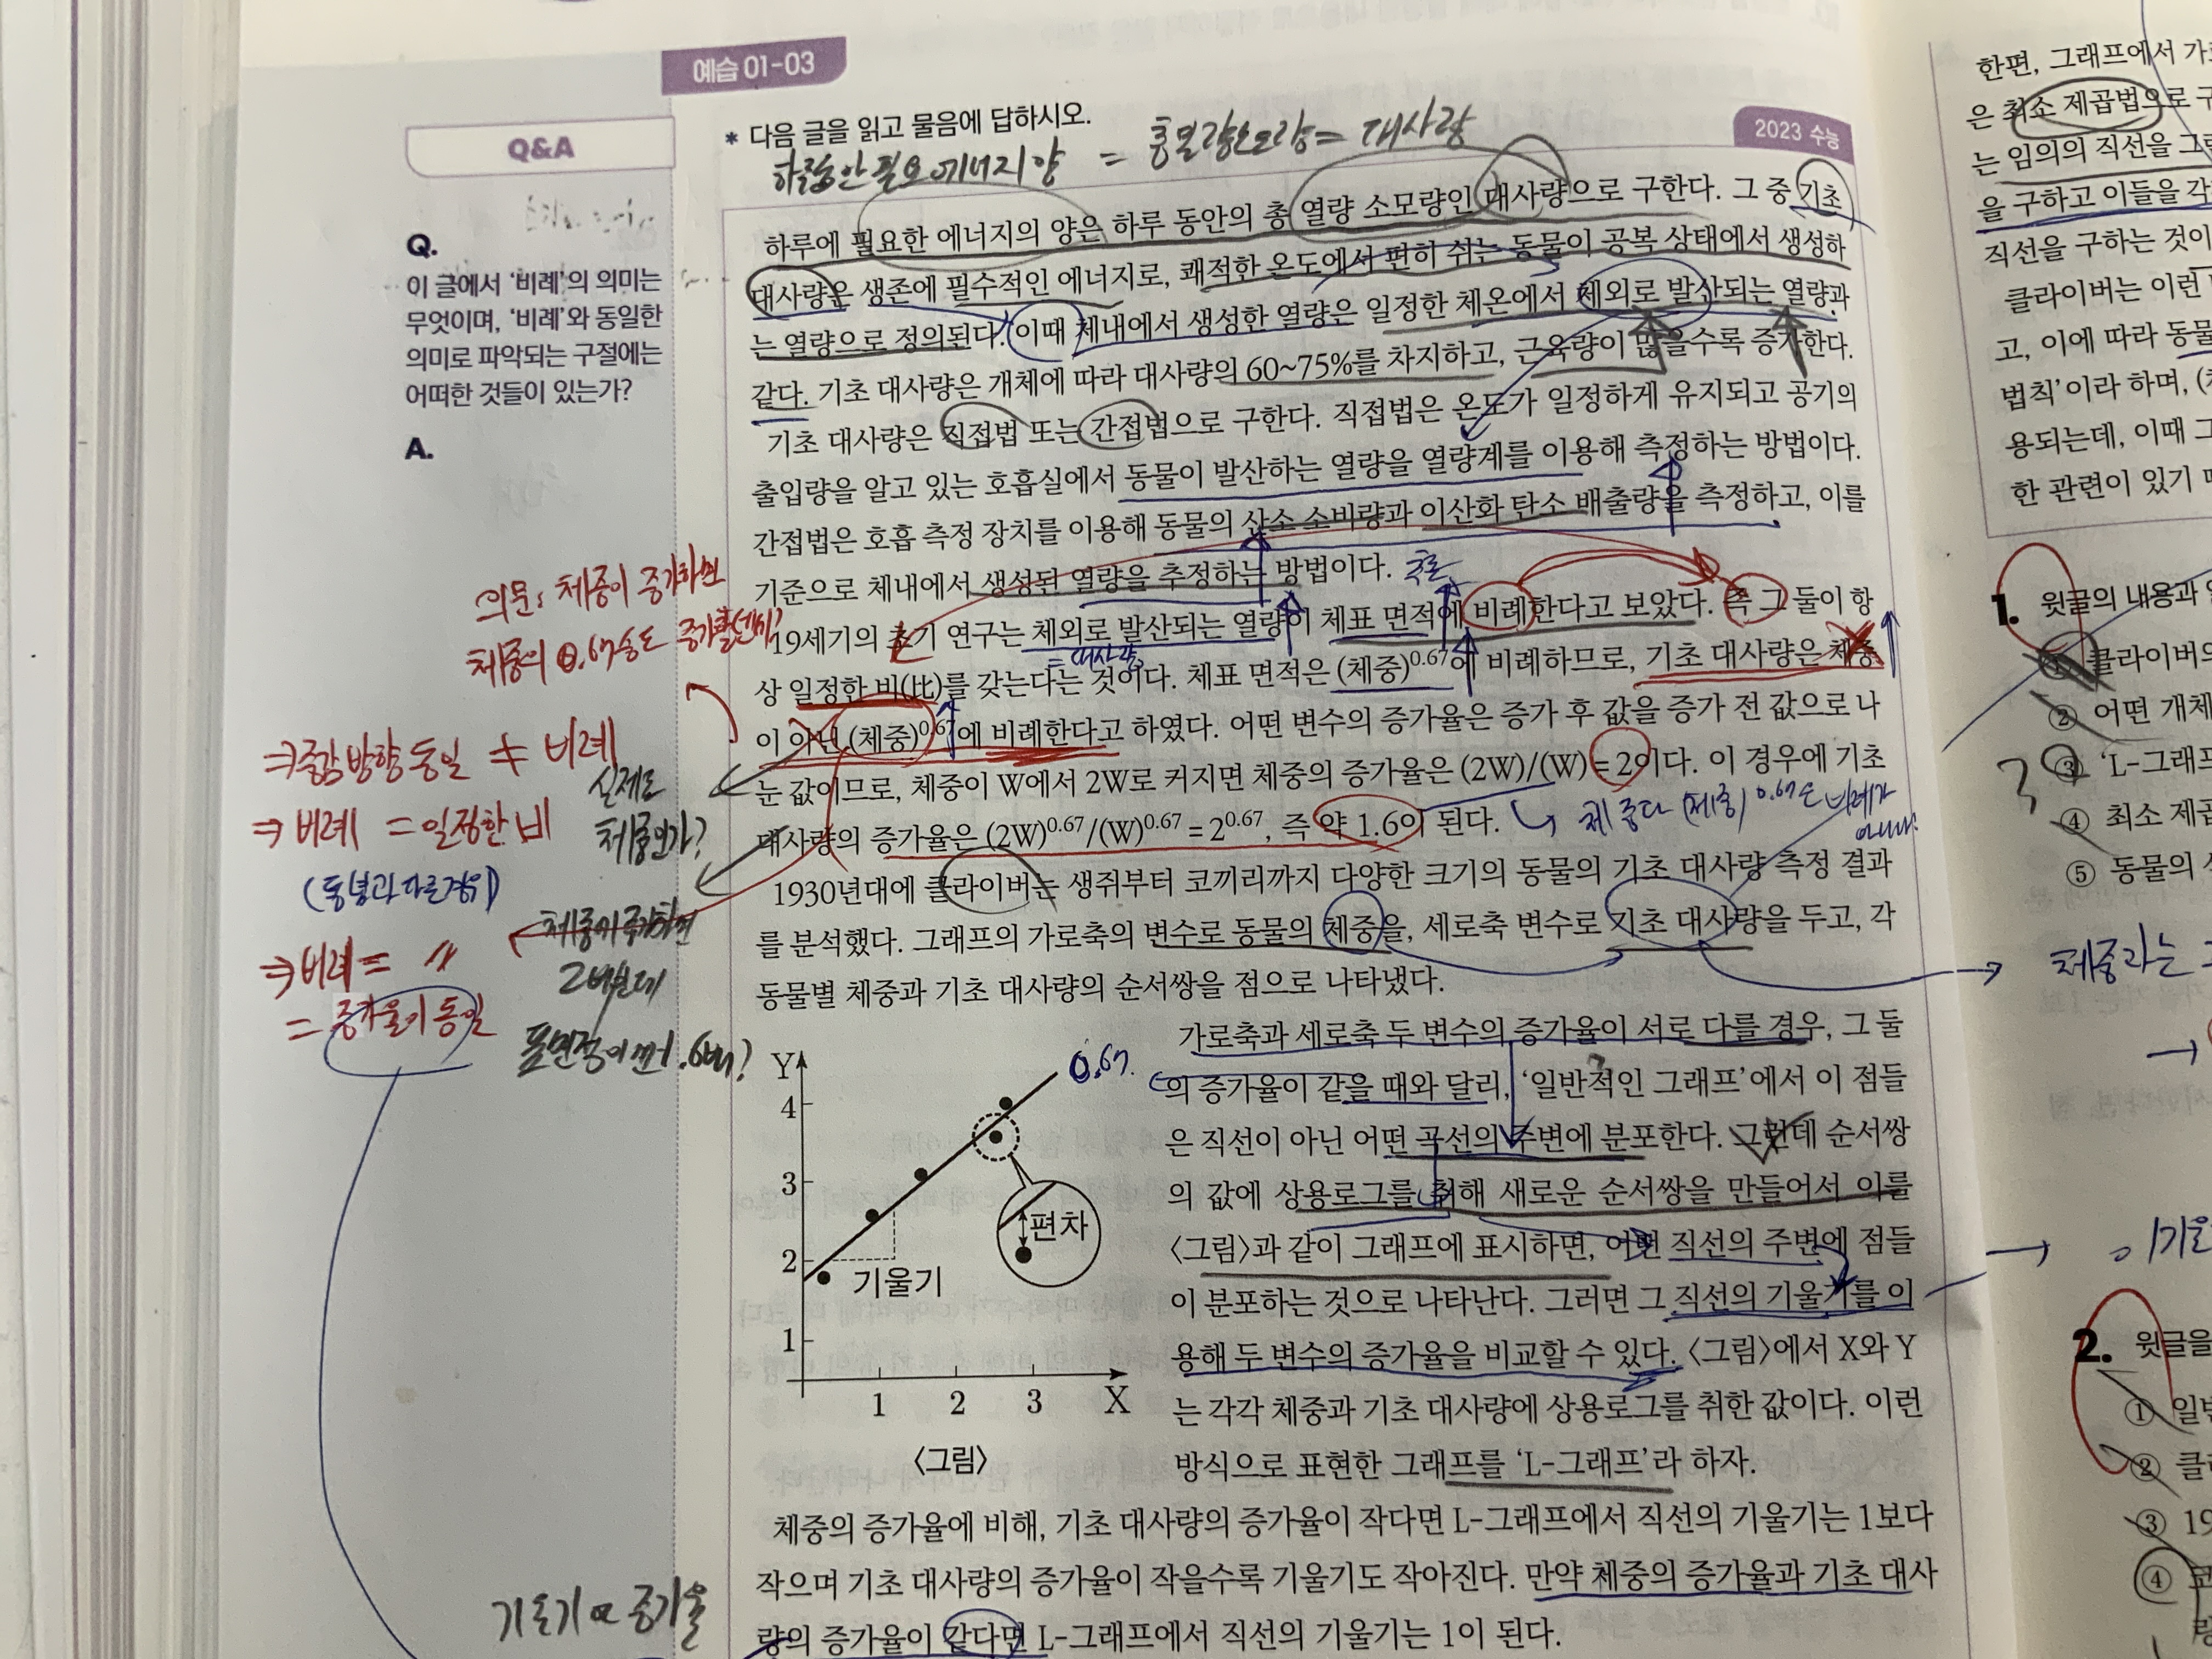 예습 01-03
Q&A
Q.
이 글에서 '비례'의 의미는
무엇이며, '비례'와 동일한
의미로 파악되는 구절에는
어떠한 것들이 있는가?
A.
* 다음 글을 읽고 물음에 답하시오.
2023 수능
하루에 필요한 에너지의 양은 하루 동안의 총 열량 소모량인 대사량으로 구한다. 그 중 기초
대사량은 생존에 필수적인 에너지로, 쾌적한 온도에서 편히 쉬는 동물이 공복 상태에서 생성하
는 열량으로 정의된다. 이때 체내에서 생성한 열량은 일정한 체온에서 체외로 발산되는 열량과
같다. 기초 대사량은 개체에 따라 대사량의 60~75%를 차지하고, 근육량이 많을수록 증가한다.
기초 대사량은 직접법 또는 간접법으로 구한다. 직접법은 온도가 일정하게 유지되고 공기의
출입량을 알고 있는 호흡실에서 동물이 발산하는 열량을 열량계를 이용해 측정하는 방법이다.
간접법은 호흡 측정 장치를 이용해 동물의 산소 소비량과 이산화 탄소 배출량을 측정하고, 이를
기준으로 체내에서 생성된 열량을 추정하는 방법이다.
19세기의 초기 연구는 체외로 발산되는 열량이 체표 면적에 비례한다고 보았다. 즉 그 둘이 항
상 일정한 비(比)를 갖는다는 것이다. 체표 면적은 (체중)^0.67에 비례하므로, 기초 대사량은 체중
이 아닌 (체중)^0.67에 비례한다고 하였다. 어떤 변수의 증가율은 증가 후 값을 증가 전 값으로 나
눈 값이므로, 체중이 W에서 2W로 커지면 체중의 증가율은 (2W)/(W) = 2이다. 이 경우에 기초
대사량의 증가율은 (2W)^0.67/(W)^0.67 = 2^0.67, 즉 약 1.6이 된다.
1930년대에 클라이버는 생쥐부터 코끼리까지 다양한 크기의 동물의 기초 대사량 측정 결과
를 분석했다. 그래프의 가로축의 변수로 동물의 체중을, 세로축 변수로 기초 대사량을 두고, 각
동물별 체중과 기초 대사량의 순서쌍을 점으로 나타냈다.
가로축과 세로축 두 변수의 증가율이 서로 다를 경우, 그 둘
의 증가율이 같을 때와 달리, '일반적인 그래프'에서 이 점들
은 직선이 아닌 어떤 곡선의 주변에 분포한다. 그런데 순서쌍
의 값에 상용로그를 취해 새로운 순서쌍을 만들어서 이를
〈그림〉과 같이 그래프에 표시하면, 어떤 직선의 주변에 점들
이 분포하는 것으로 나타난다. 그러면 그 직선의 기울기를 이
용해 두 변수의 증가율을 비교할 수 있다. 〈그림〉에서 X와 Y
는 각각 체중과 기초 대사량에 상용로그를 취한 값이다. 이런
방식으로 표현한 그래프를 'L-그래프'라 하자.
Y
4
3
2
1
1 2 3 X
기울기
편차
〈그림〉
0.67
체중의 증가율에 비해, 기초 대사량의 증가율이 작다면 L-그래프에서 직선의 기울기는 1보다
작으며 기초 대사량의 증가율이 작을수록 기울기도 작아진다. 만약 체중의 증가율과 기초 대사
량의 증가율이 같다면 L-그래프에서 직선의 기울기는 1이 된다.
의문: 체중이 증가하면
체중의 0.67승도
⇒ 증감 방향 동일 ≠ 비례
⇒ 비례 = 일정한 비
(통념과 다른 경우)
⇒ 비례 = 〃
= 증가율이 동일
실제로
체중인가?
체중이 증가하면
기울기 ∝ 증가율
한편, 그래프에서
은 최소 제곱법으로
는 임의의 직선을
을 구하고 이들을
직선을 구하는 것이
클라이버는 이런
고, 이에 따라
법칙'이라 하며,
용되는데, 이때
한 관련이 있기
1. 윗글의 내용과
① 클라이버의
② 어떤 개체
③ 'L-그래프
④ 최소 제곱
⑤ 동물의
2. 윗글을
①
②
③ 19
④